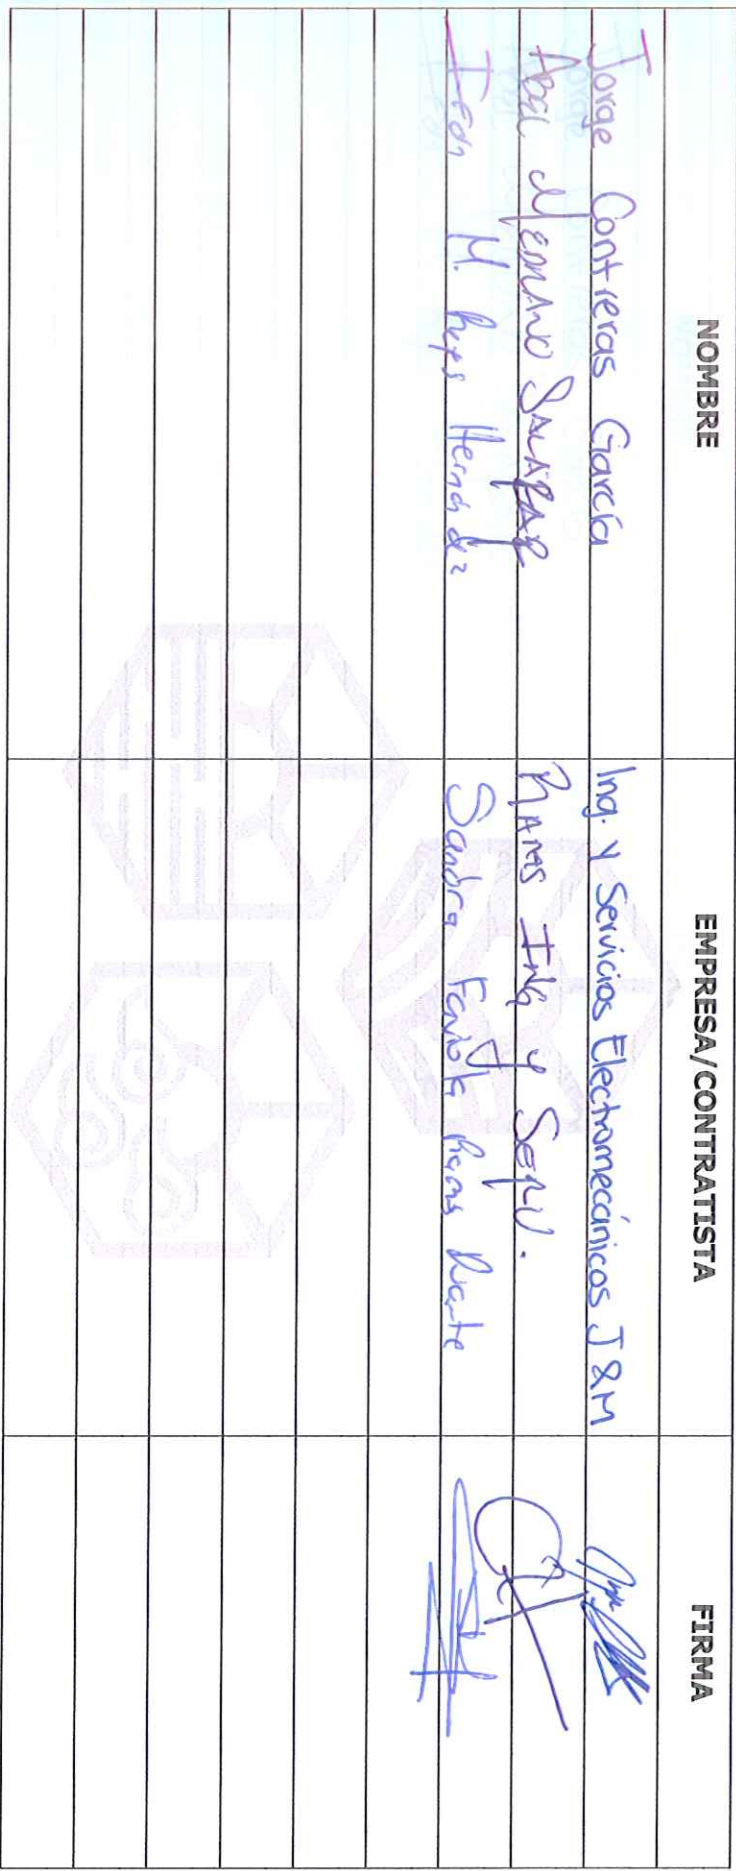 NOMBRE EMPRESA/CONTRATISTA FIRMA
Jorge Contreras García Ing. y Servicios Electromecánicos J&M
Abel Medrano Salazar Rams Ing y Serv.
M. Reyes Hernández Sandra Fabiola Duarte